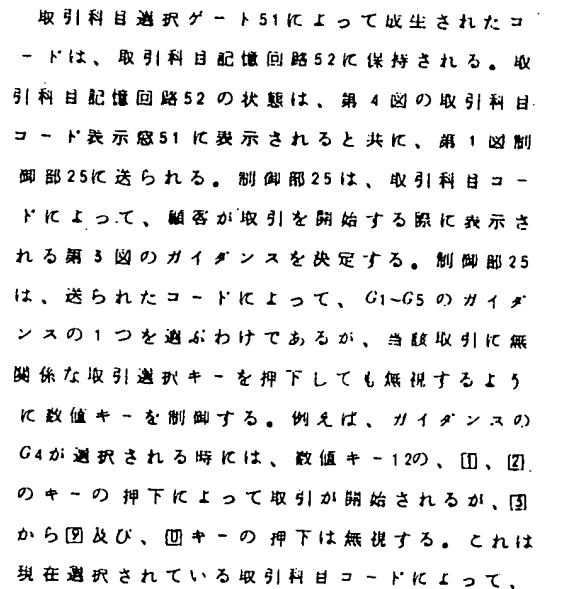 取引科目選択ゲート51によって成生されたコ
ードは、取引科目記憶回路52に保持される。取
引科目記憶回路52の状態は、第4図の取引科目
コード表示窓51に表示されると共に、第1図制
御部25に送られる。制御部25は、取引科目コー
ドによって、顧客が取引を開始する際に表示さ
れる第3図のガイダンスを決定する。制御部25
は、送られたコードによって、G1~G5のガイダ
ンスの1つを選ぶわけであるが、当該取引に無
関係な取引選択キーを押下しても無視するよう
に数値キーを制御する。例えば、ガイダンスの
G4が選択される時には、数値キー12の、[1]、[2]
のキーの押下によって取引が開始されるが、[3]
から[9]及び、[0]キーの押下は無視する。これは
現在選択されている取引科目コードによって、